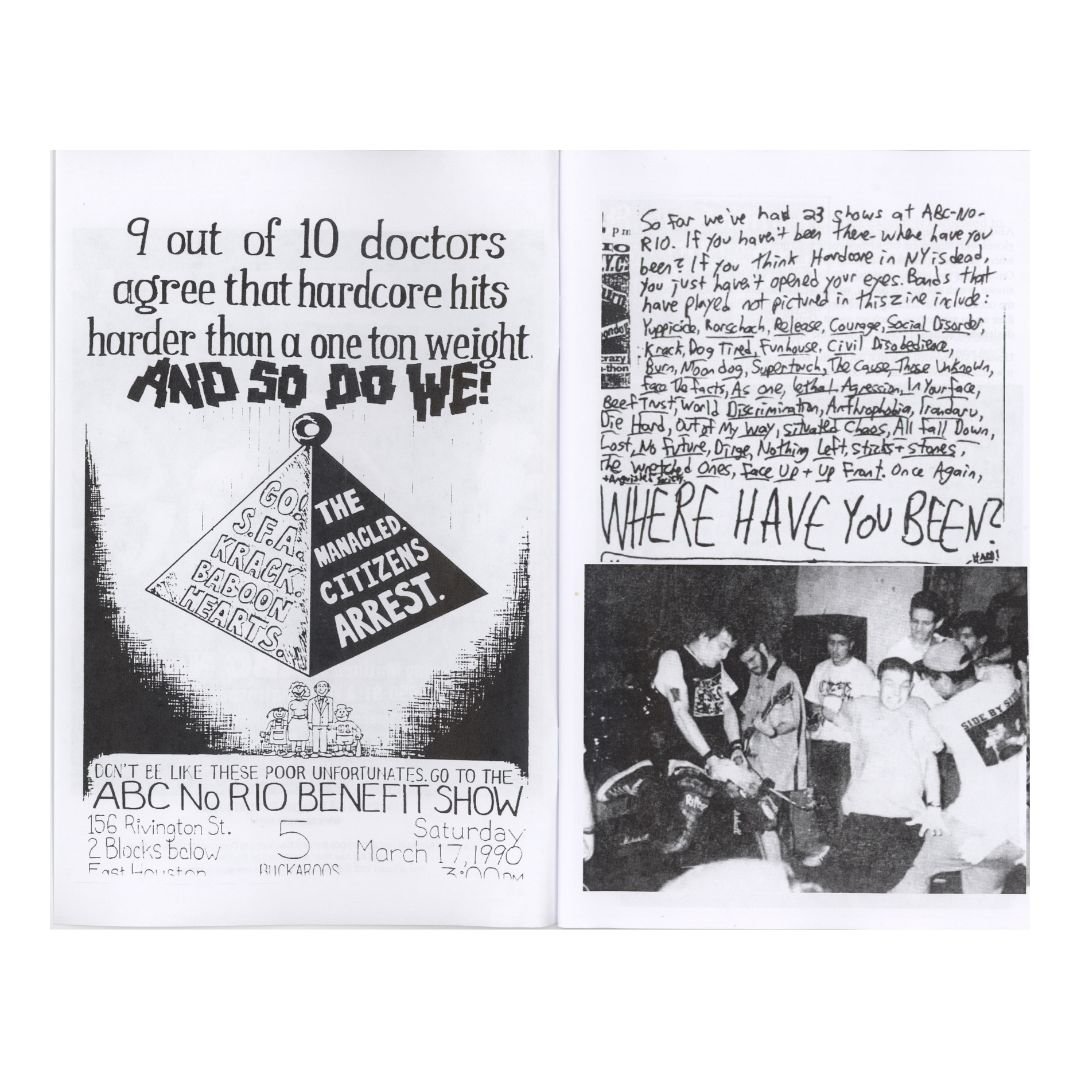 9 out of 10 doctors
agree that hardcore hits
harder than a one ton weight.
AND SO DO WE!
GO!
S.F.A.
KRACK.
BABOON
HEARTS.
THE
MANACLED.
CITIZENS
ARREST.
DON'T BE LIKE THESE POOR UNFORTUNATES. GO TO THE
ABC No RIO BENEFIT SHOW
156 Rivington St.
2 Blocks below
East Houston
5
BUCKAROOS
Saturday
March 17, 1990
3:00 PM
So far we've had 23 shows at ABC-NO-
RIO. If you haven't been there- where have you
been? If you think Hardcore in NY is dead,
you just haven't opened your eyes. Bands that
have played not pictured in this zine include:
Yuppicide, Rorschach, Release, Courage, Social Disorder,
Krack, Dog Tired, Funhouse, Civil Disobedience,
Burn, Moondog, Supertouch, The Cause, Those Unknown,
Face The facts, As one, Lethal Agression, In Your face,
Beef Trust, World Discrimination, Anthrophobia, Irandaru,
Die Hard, Out of My Way, Situated Chaos, All Fall Down,
Lost, No Future, Dirge, Nothing Left, Sticks + Stones,
The Wretched Ones, Face Up + Up Front. Once Again,
WHERE HAVE YOU BEEN?
pm
N.Y.C.
crazy
-thon
SIDE BY SIDE